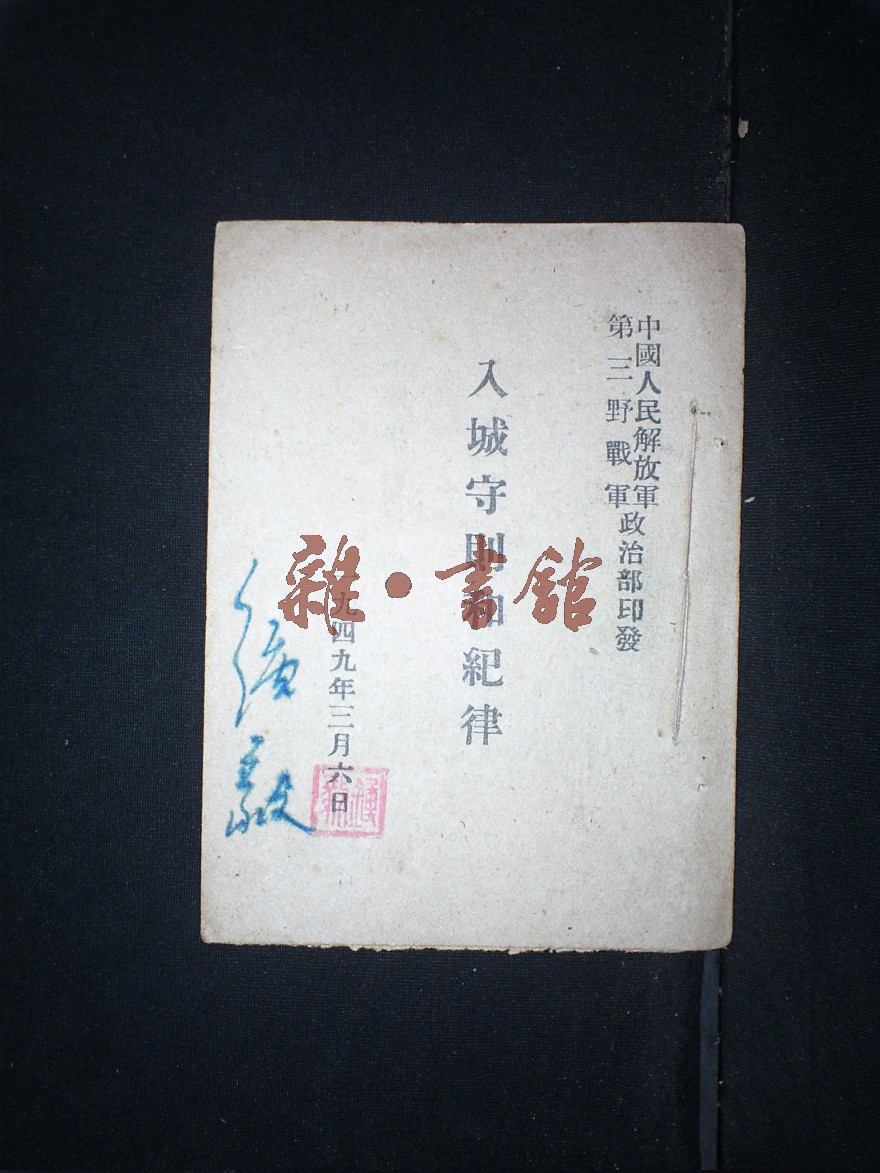 中國人民解放軍
第三野戰軍
政治部印發
入城守則和紀律
九四九年三月六日
雜·書館